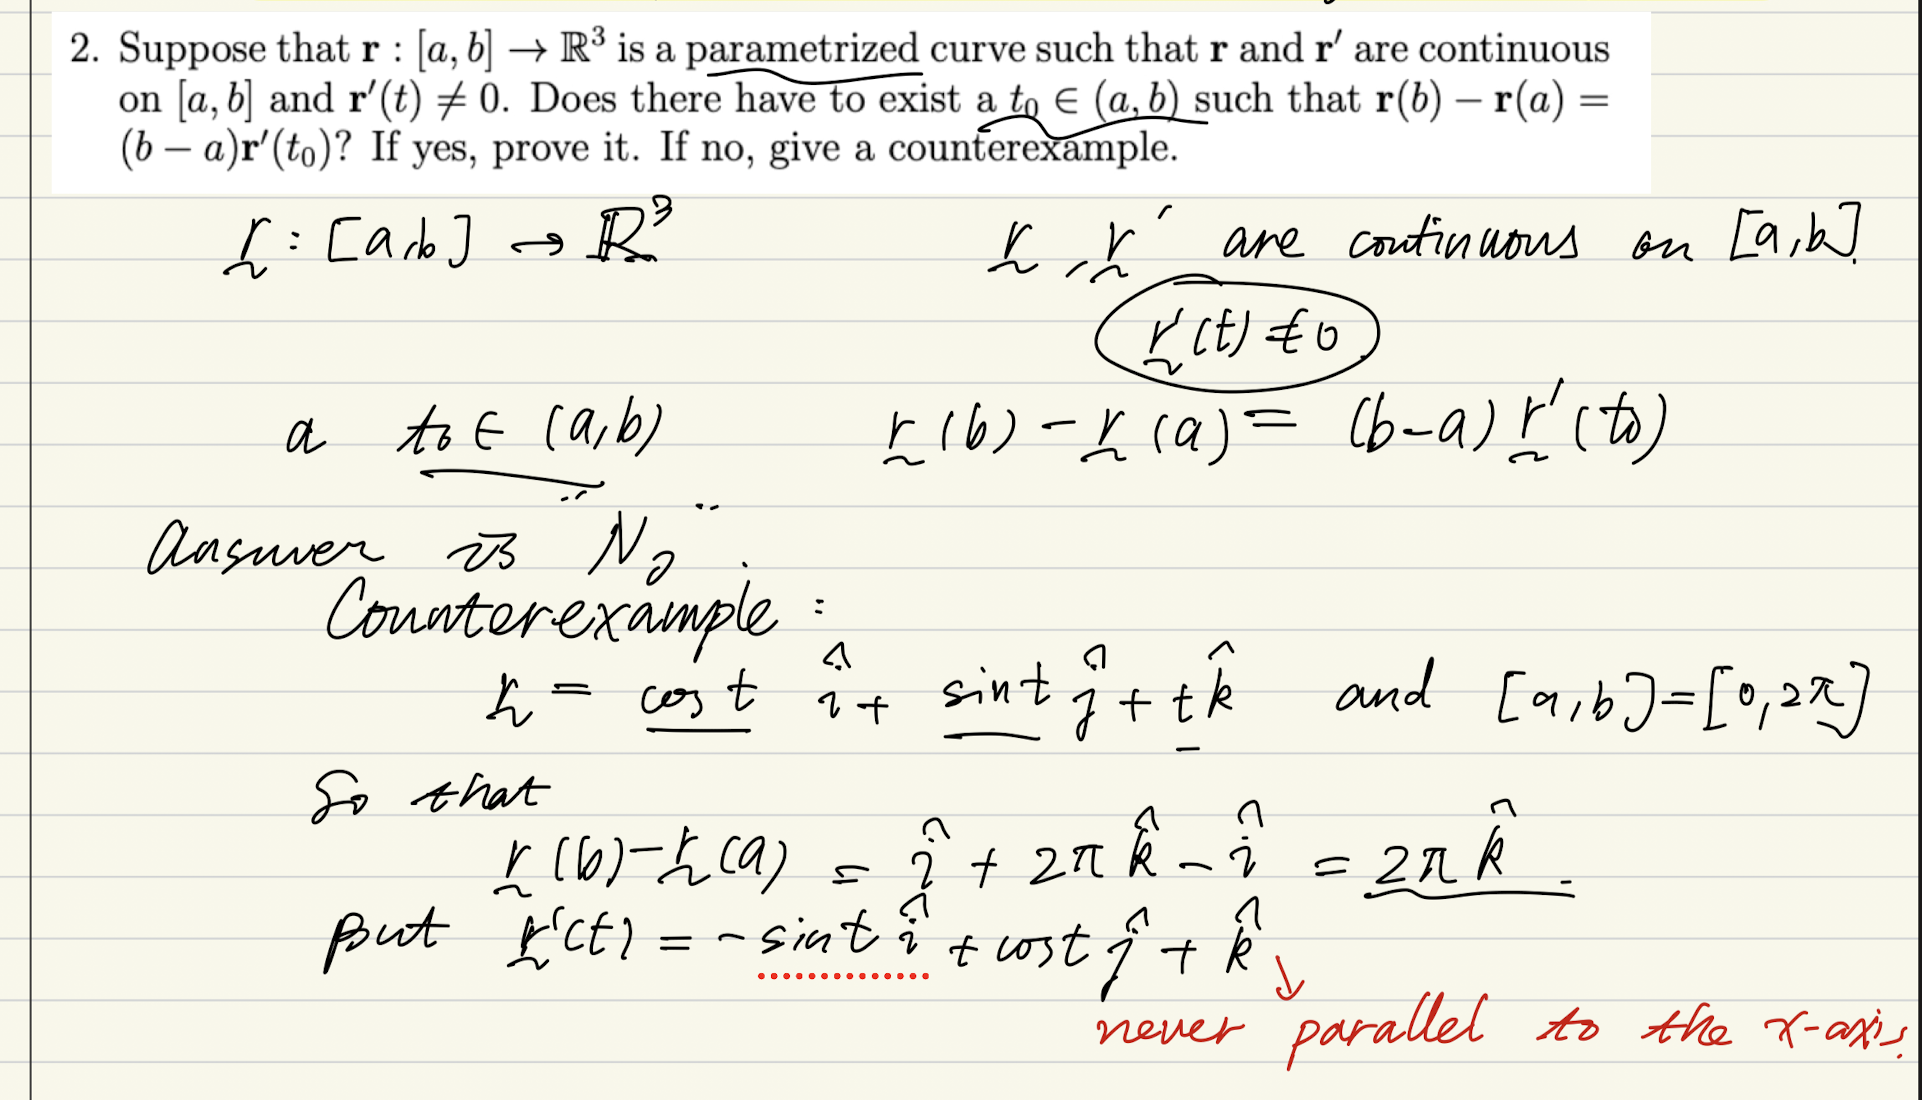 2. Suppose that r : [a, b] → ℝ³ is a parametrized curve such that r and r′ are continuous
on [a, b] and r′(t) ≠ 0. Does there have to exist a t₀ ∈ (a, b) such that r(b) − r(a) =
(b − a)r′(t₀)? If yes, prove it. If no, give a counterexample.
r : [a,b] → ℝ³ r, r′ are continuous on [a,b].
r′(t) ≠ 0
a t₀ ∈ (a,b) r(b) − r(a) = (b−a) r′(t₀)
Answer is "No".
Counterexample :
r = cos t î + sin t ĵ + t k̂ and [a,b]=[0,2π]
So that
r(b) − r(a) = î + 2π k̂ − î = 2π k̂.
But r′(t) = −sin t î + cos t ĵ + k̂
never parallel to the x-axis.